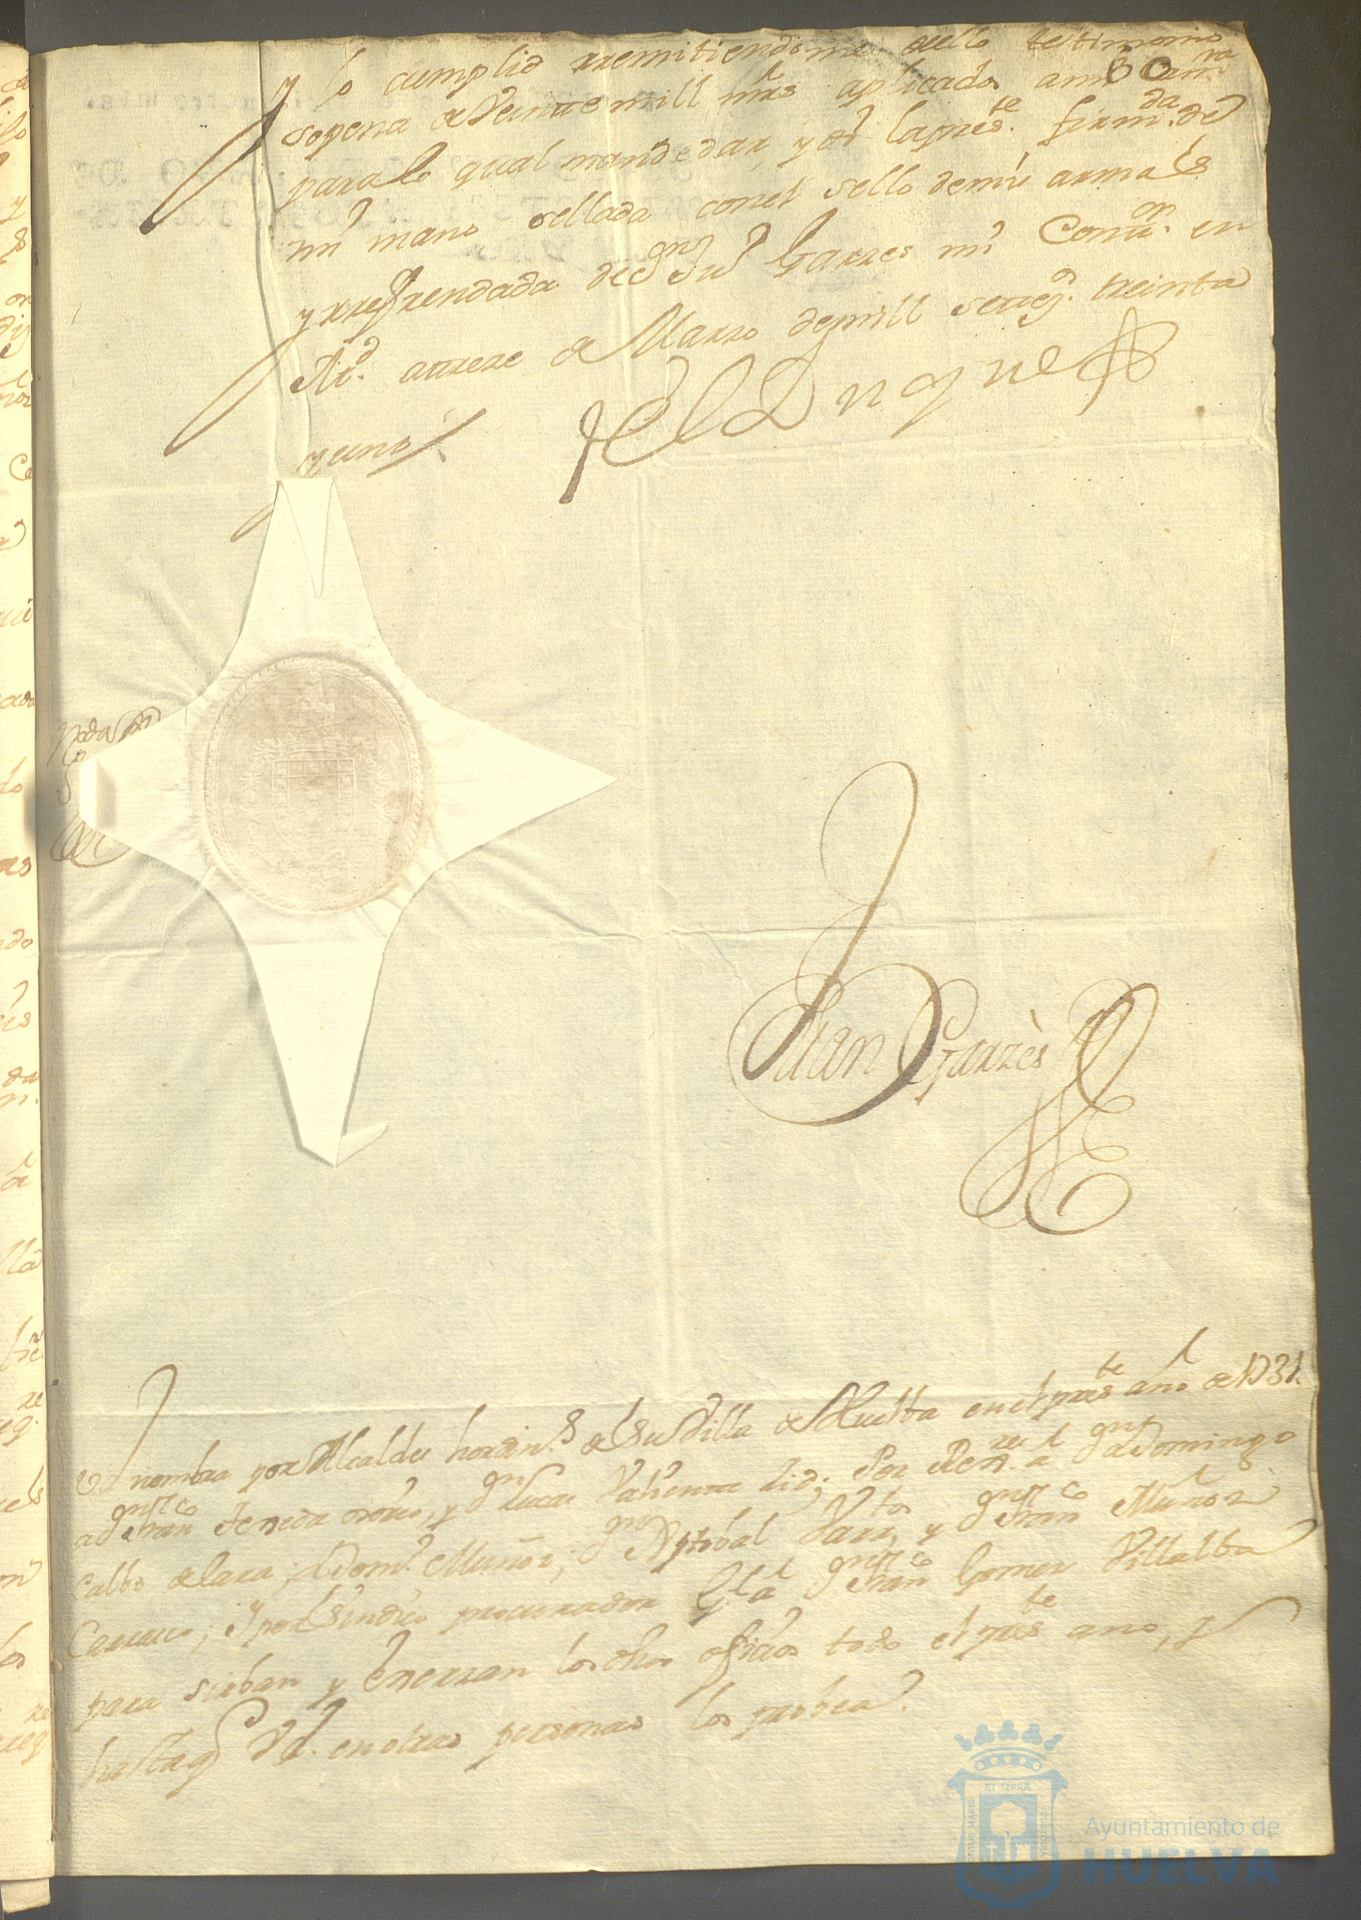 y lo cumplid rremitiendome dello testimonio
60
sopena de Veinte mill mrs aplicados a mi Cam.ra
para lo qual mande dar, y di la pres.te firm.da de
mi mano sellada con el sello de mis armas
y rrefrendada de Dn Ju° Garzes mi Cont.or en
M.d a treze de Marzo de mill seteç.s treinta
y uno
El Duque
Juan Garzès
V.E. nombra por Alcaldes hordin.s de su Villa de Huelba en el pres.te año de 1731.
a Dn Fran.co de Ojeda osorio, y Dn Lucas Valiente Por Rex.res a Dn Domingo
Calbo de Lara; Muñoz; Dn Xptobal y Dn Fran.co Muñoz
Carrasco; y por Sindico procurador G.l a Dn Fran.co Gomez Villalba
para sirban y exerzan los dhos ofizios todo el pres.te año, y
hasta q V.E. en otras personas los probea.
Ayuntamiento de
HUELVA